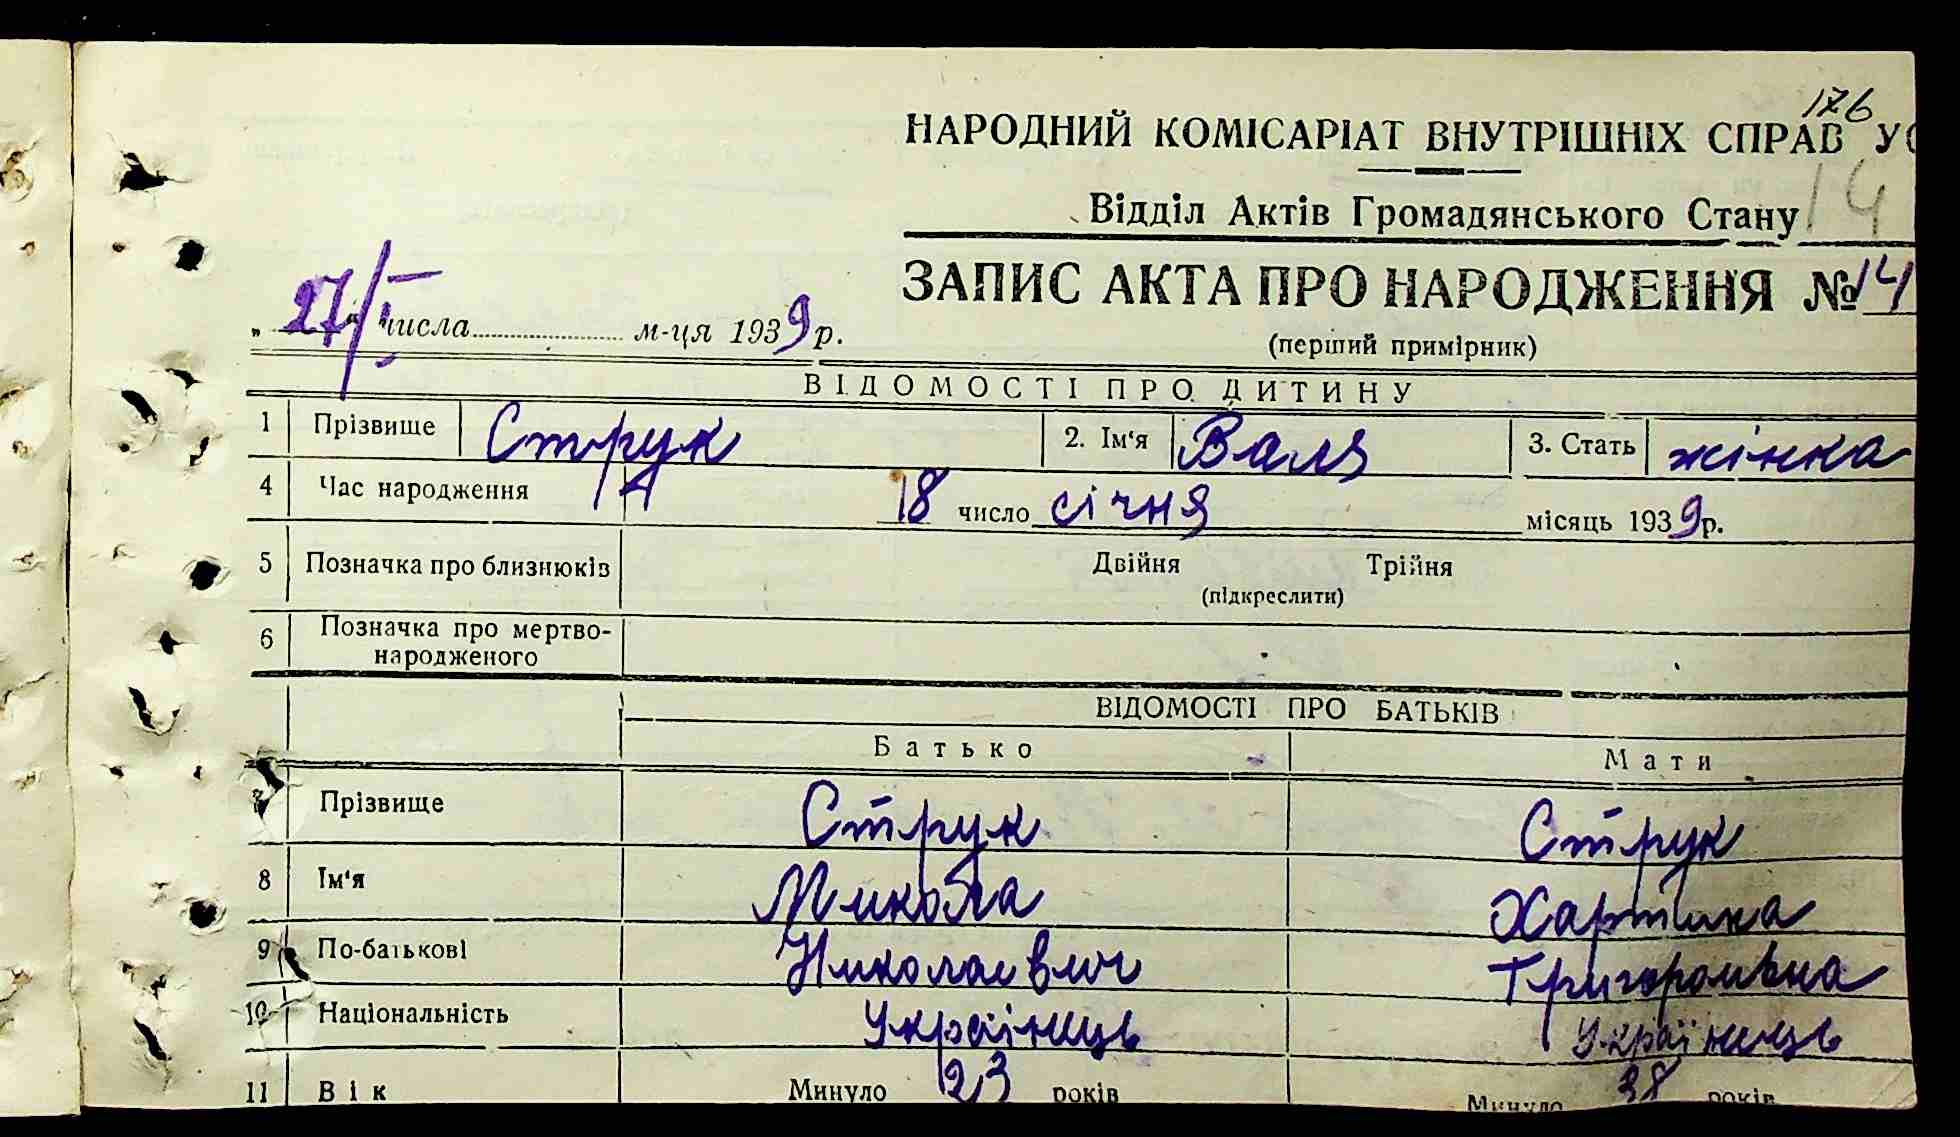 176
НАРОДНИЙ КОМІСАРІАТ ВНУТРІШНІХ СПРАВ
Відділ Актів Громадянського Стану 14
ЗАПИС АКТА ПРО НАРОДЖЕННЯ № 14
„ 27/І числа м-ця 1939 р.
(перший примірник)
ВІДОМОСТІ ПРО ДИТИНУ
1 Прізвище Струк 2. Ім'я Валя 3. Стать жінка
4 Час народження 18 число січня місяць 1939 р.
5 Позначка про близнюків Двійня Трійня
(підкреслити)
6 Позначка про мертво-
народженого
ВІДОМОСТІ ПРО БАТЬКІВ
Батько Мати
7 Прізвище Струк Струк
8 Ім'я Микола Хартина
9 По-батькові Николаевич
10 Національність Українець Українець
11 Вік Минуло 23 років Минуло 38 років